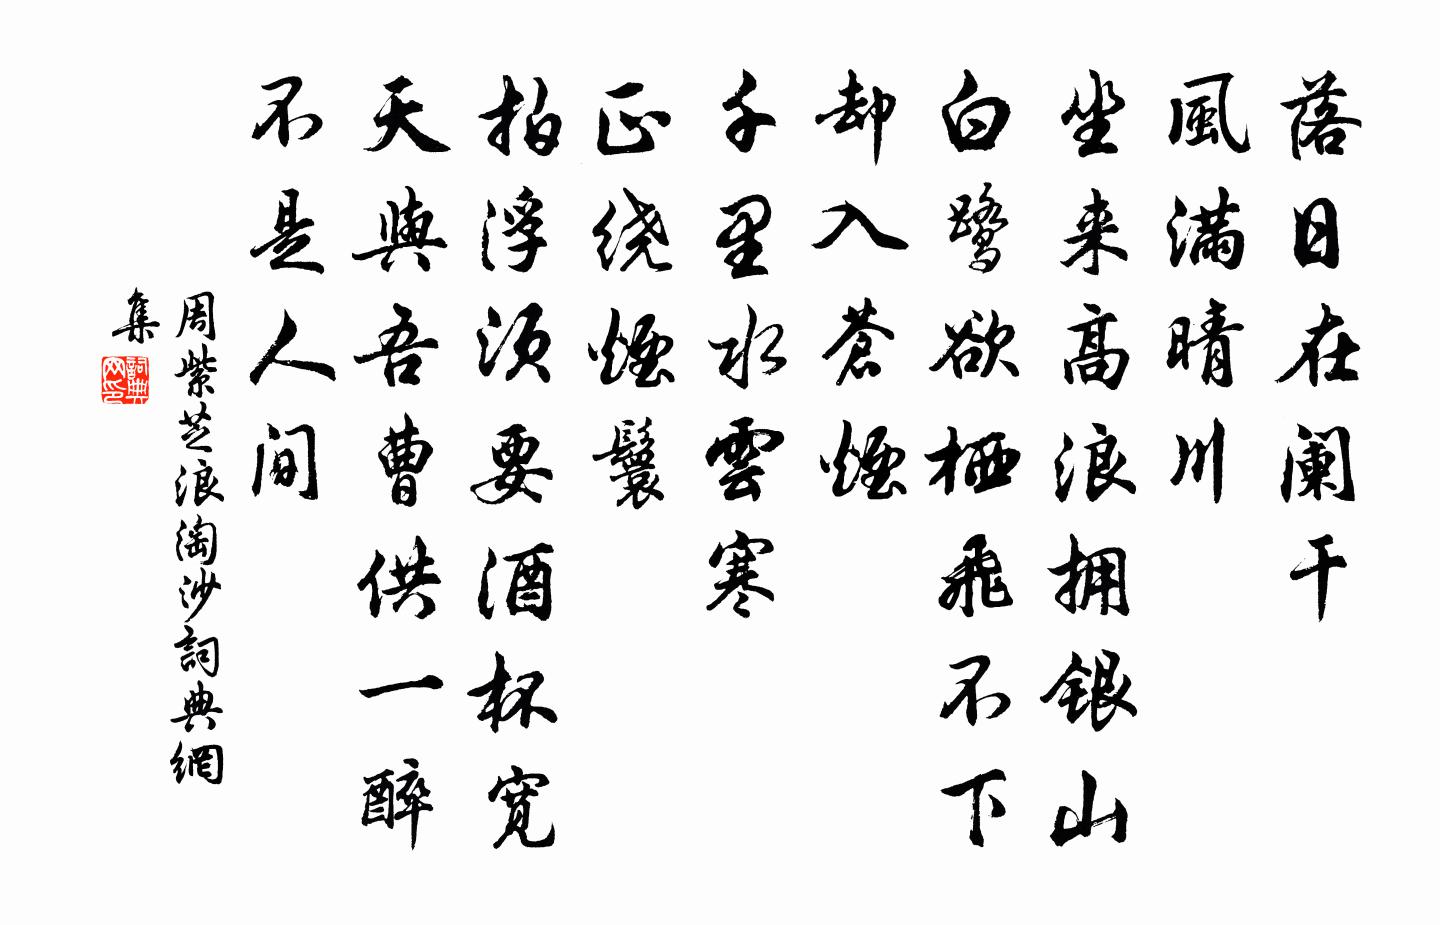 落日在阑干
風满晴川
坐来高浪拥银山
白鹭欲栖飛不下
却入蒼煙
千里水雲寒
正绕煙鬟
拍浮须要酒杯宽
天與吾曹供一醉
不是人间
周紫芝浪淘沙詞典網
集
詞典
网印